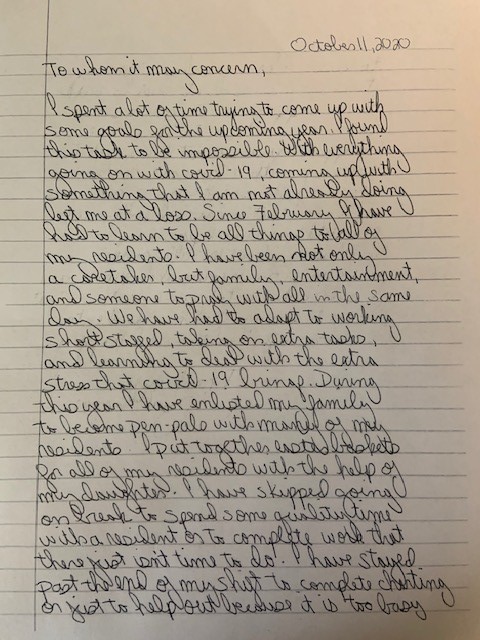 October 11, 2020
To whom it may concern,
I spent a lot of time trying to come up with
some goals for the upcoming year. I found
this task to be impossible. With everything
going on with covid-19, coming up with
something that I am not already doing
left me at a loss. Since February I have
had to learn to be all things to all of
my residents. I have been not only
a caretaker, but family, entertainment,
and someone to pray with all in the same
day. We have had to adapt to working
short staffed, taking on extra tasks,
and learning to deal with the extra
stress that covid-19 brings. During
this year I have enlisted my family
to become pen-pals with many of my
residents. I put together easter baskets
for all of my residents with the help of
my daughter. I have skipped going
on break to spend some quality time
with a resident or to complete work that
there just isn't time to do. I have stayed
past the end of my shift to complete charting
or just to help out because it is too busy